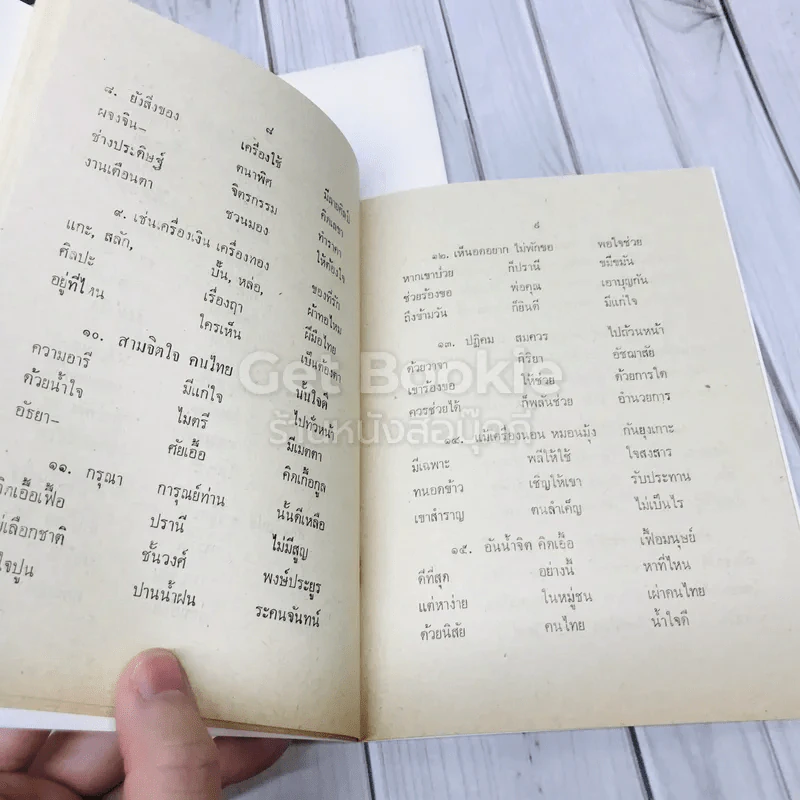 ๘
๘. ยังสิ่งของ เครื่องใช้
ผจงจิน- ตนาพิศ
ช่างประดิษฐ์ จิตรกรรม คิดเลขา
งานเตือนตา ชวนมอง ทำราคา
๙. เช่นเครื่องเงิน เครื่องทอง ให้ต้องใจ
แกะ, สลัก, ปั้น, หล่อ, ของที่รัก
ศิลปะ เรื่องฤา ผ้าทอไหม
อยู่ที่ไหน ใครเห็น ฝีมือไทย
๑๐. สามจิตใจ คนไทย
ความอารี มีแก่ใจ นั้นใจดี
ด้วยน้ำใจ ไมตรี ไปทั่วหน้า
อัธยา- ศัยเอื้อ มีเมตตา
๑๑. กรุณา การุณย์ท่าน คิดเกื้อกูล
ปรานี นั้นดีเหลือ
เลือกชาติ ชั้นวงศ์ ไม่มีสูญ
ใจปูน ปานน้ำฝน พงษ์ประยูร
ระคนจันทน์
๙
๑๒. เห็นอดอยาก ไม่พักขอ พอใจช่วย
หากเขาป่วย ก็ปรานี ขมีขมัน
ช่วยร้องขอ พ่อคุณ เอาบุญกัน
ถึงข้ามวัน ก็ยินดี มีแก่ใจ
๑๓. ปฏิคม สมควร ไปถ้วนหน้า
ด้วยวาจา กิริยา อัชฌาสัย
เขาร้องขอ ให้ช่วย ด้วยการใด
ควรช่วยได้ ก็พลันช่วย อำนวยการ
๑๔. แม้เครื่องนอน หมอนมุ้ง กันยุงเกาะ
มีเฉพาะ พลีให้ใช้ ใจสงสาร
ทนอดข้าว เชิญให้เขา รับประทาน
เขาสำราญ ตนลำเค็ญ ไม่เป็นไร
๑๕. อันน้ำจิต คิดเอื้อ เฟื้อมนุษย์
ดีที่สุด อย่างนี้ หาที่ไหน
แต่หาง่าย ในหมู่ชน เผ่าคนไทย
ด้วยนิสัย คนไทย น้ำใจดี
Get Bookie
ร้านหนังสือบุ๊คกี้